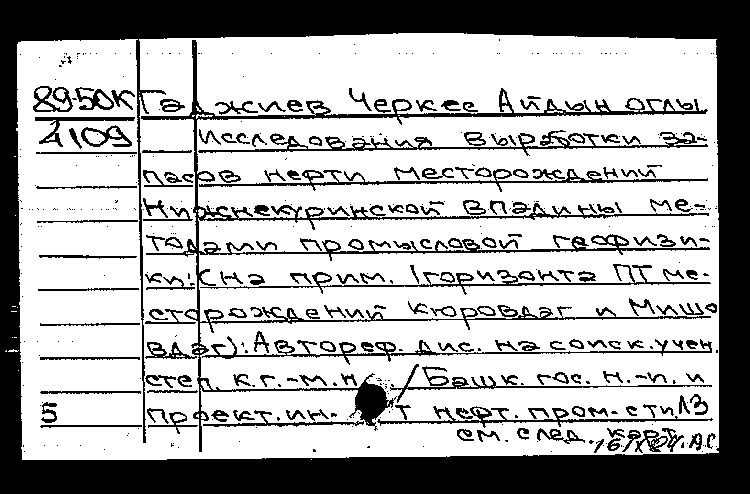 89-50К Гаджиев Черкес Айдын оглы
4109 Исследования выработки за-
пасов нефти месторождений
Нижнекуринской впадины ме-
тодами промысловой геофизи-
ки: (на прим. I горизонта ПТ ме-
сторождений Кюровдаг и Мишо
вдаг): Автореф. дис. на соиск. учен.
степ. к.г.-м.н / Башк. гос. н.-и. и
5 проект. ин- т нефт. пром-сти ЛЗ
см. след. карт.